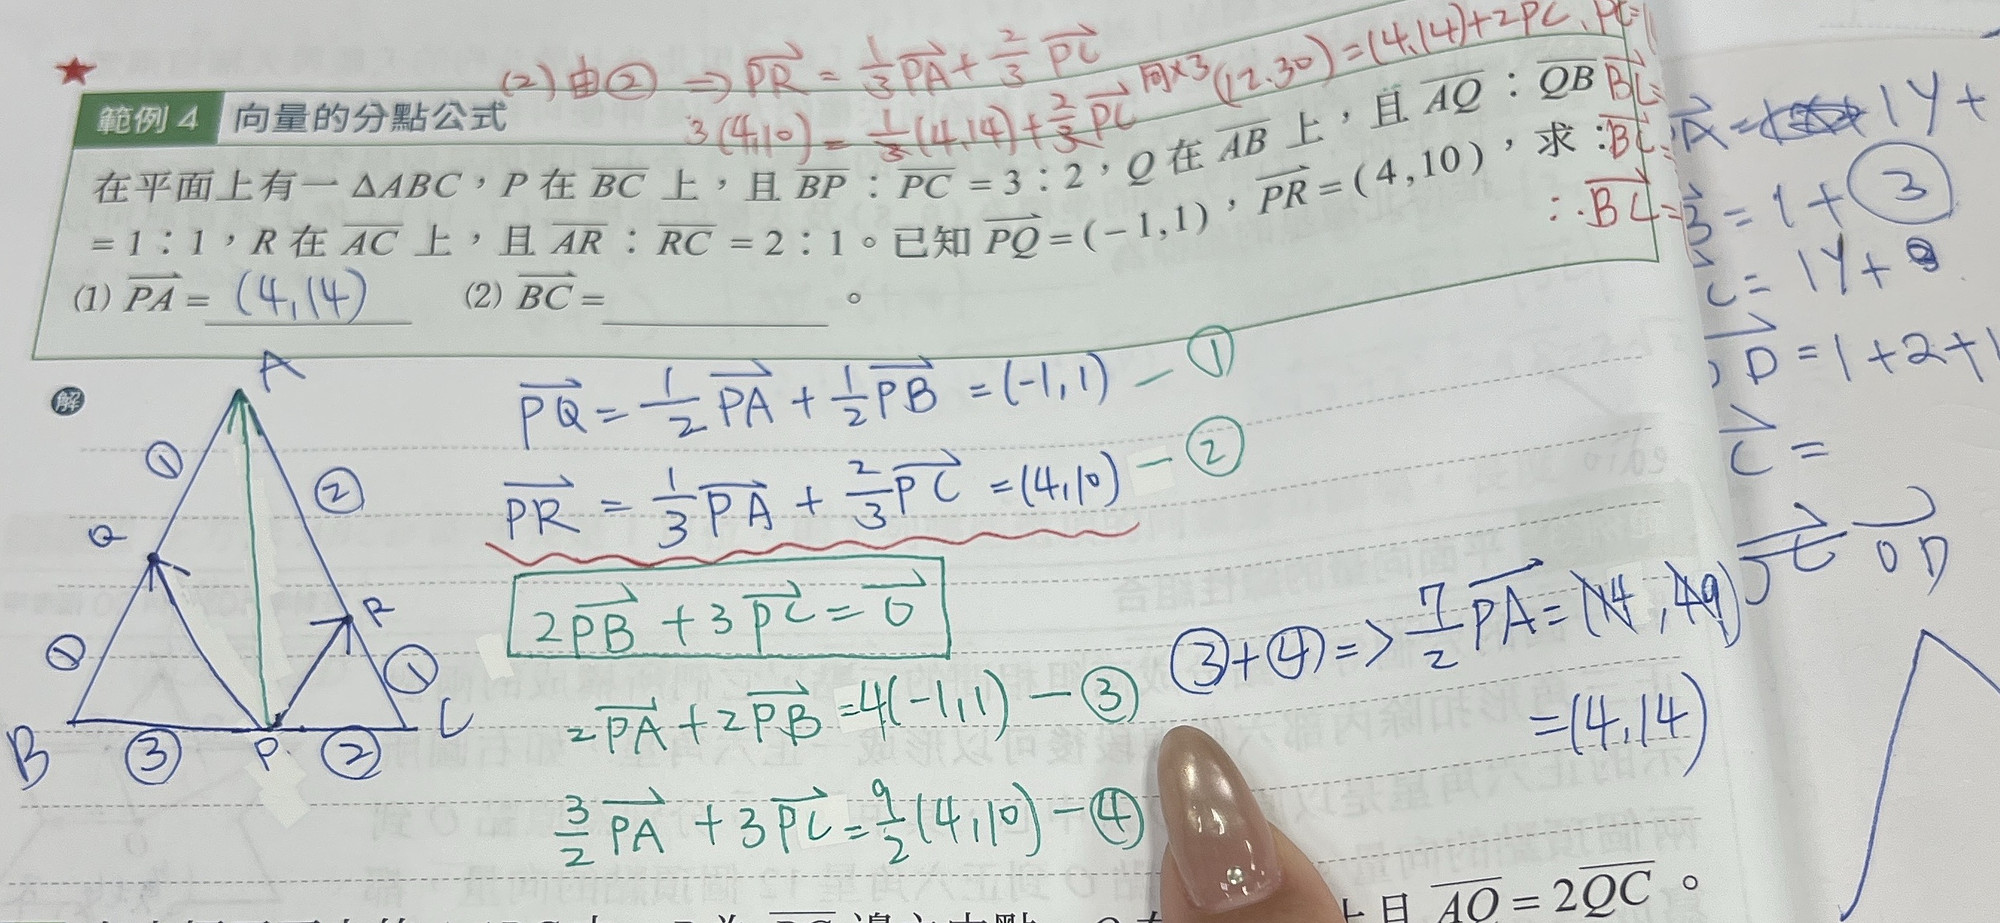 (2) 由② ⇒ PR = 1/3 PA + 2/3 PC
同×3 (12.30) = (4,14)+2PC
3(4,10) = 1/3 (4,14) + 2/3 PC
BC=
BC=
∴BC=
範例 4 向量的分點公式
在平面上有一 ΔABC，P 在 BC 上，且 BP：PC = 3：2，Q 在 AB 上，且 AQ：QB
= 1：1，R 在 AC 上，且 AR：RC = 2：1。已知 PQ = (−1,1)，PR = (4,10)，求：
(1) PA = (4,14) (2) BC = ______。
解
A
① ②
Q R
① ①
B ③ P ② C
PQ = 1/2 PA + 1/2 PB = (-1,1) — ①
PR = 1/3 PA + 2/3 PC = (4,10) — ②
2PB + 3PC = 0
2PA + 2PB = 4(-1,1) — ③
3/2 PA + 3PC = 9/2 (4,10) — ④
③+④ => 7/2 PA = (14,49)
= (4,14)
A = 1y+
3 = 1+③
C = 1y+
D = 1+2+1
C =
OD
上且 AQ = 2QC。